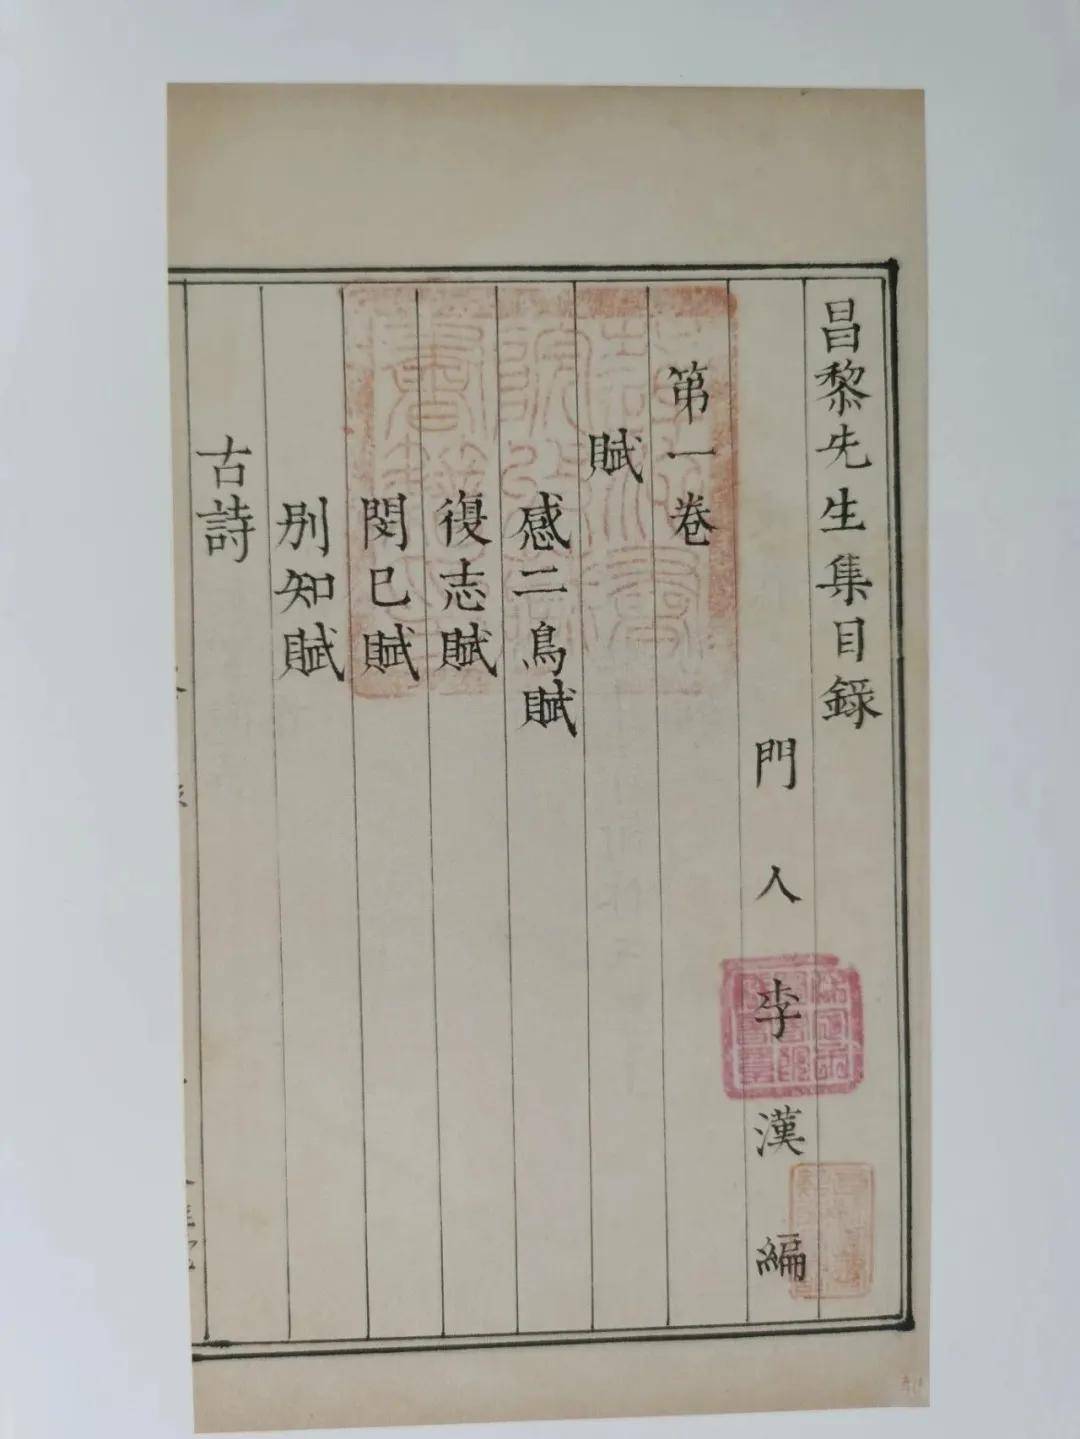 昌黎先生集目録
門人李漢編
第一卷
賦
感二鳥賦
復志賦
閔已賦
别知賦
古詩